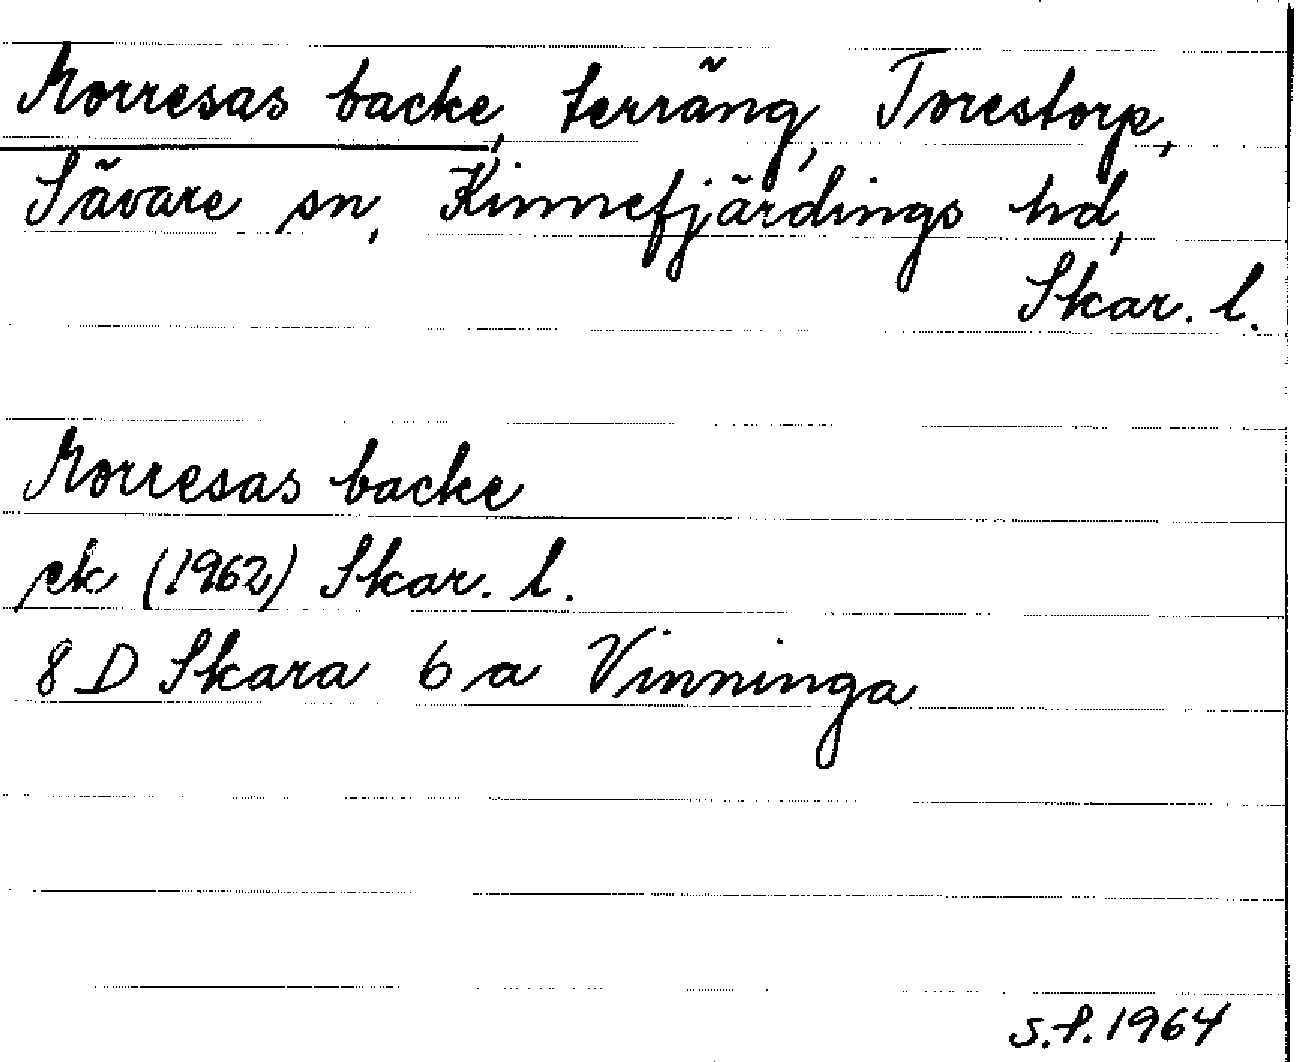 Morresas backe, terräng, Torestorp,
Sävare sn, Kinnefjärdings hd,
Skar. l.
Morresas backe
ek (1962) Skar. l.
8 D Skara 6 a Vinninga
S.f. 1964